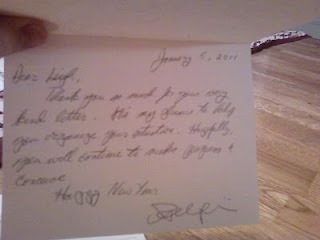 January 5, 2011
Dear Leigh,
Thank you so much for your very
kind letter. It is my       to help
you organize your       . Hopefully,
you will continue to make progress &

Happy New Year